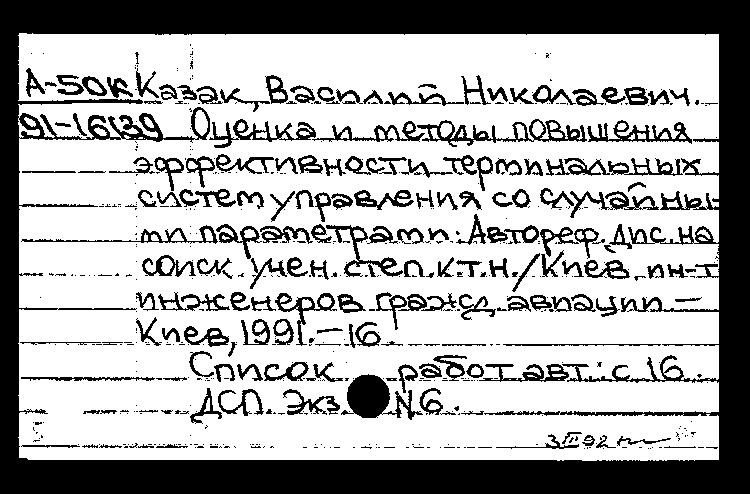 А-50К Казак, Василий Николаевич.
91-16139 Оценка и методы повышения
эффективности терминальных
систем управления со случайны-
ми параметрами: Автореф. дис. на
соиск. учен. степ. к.т.н. / Киев. ин-т
инженеров гражд. авиации. —
Киев, 1991. — 16
Список работ авт.: с 16.
ДСП. Экз. N6.
3 III 92